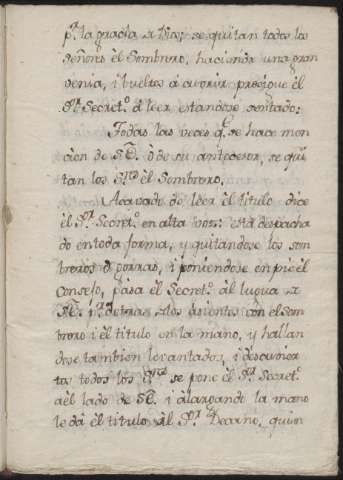 pr. la gracia a Dios; se quitan todos los
señores él Sombrero, haciendo una gran
venia, i bueltos á cuvrir prosigue él
Sr. Secret.o á leer estandose sentado:
Todas las veces q.e se hace men
cion de S.E. ò de su antecesor, se qui
tan los S.res él Sombrero.
Acavado de leer él titulo dice
él S.r Secret.o en alta voz: está despacha
do en toda forma, y quitandose los som
breros ò gorras, i poniendose en pie él
Consejo, pasa él Secret.o ál lugar a
S.E. i detras a los asientos con él som
brero i él titulo en la mano, y hallan
dose tambien levantados, i descuvier
tos todos los S.res se pone él S.r Secret.o
àel lado de S.E. i álargando la mano
le dá él titulo ál S.r Decano, quien